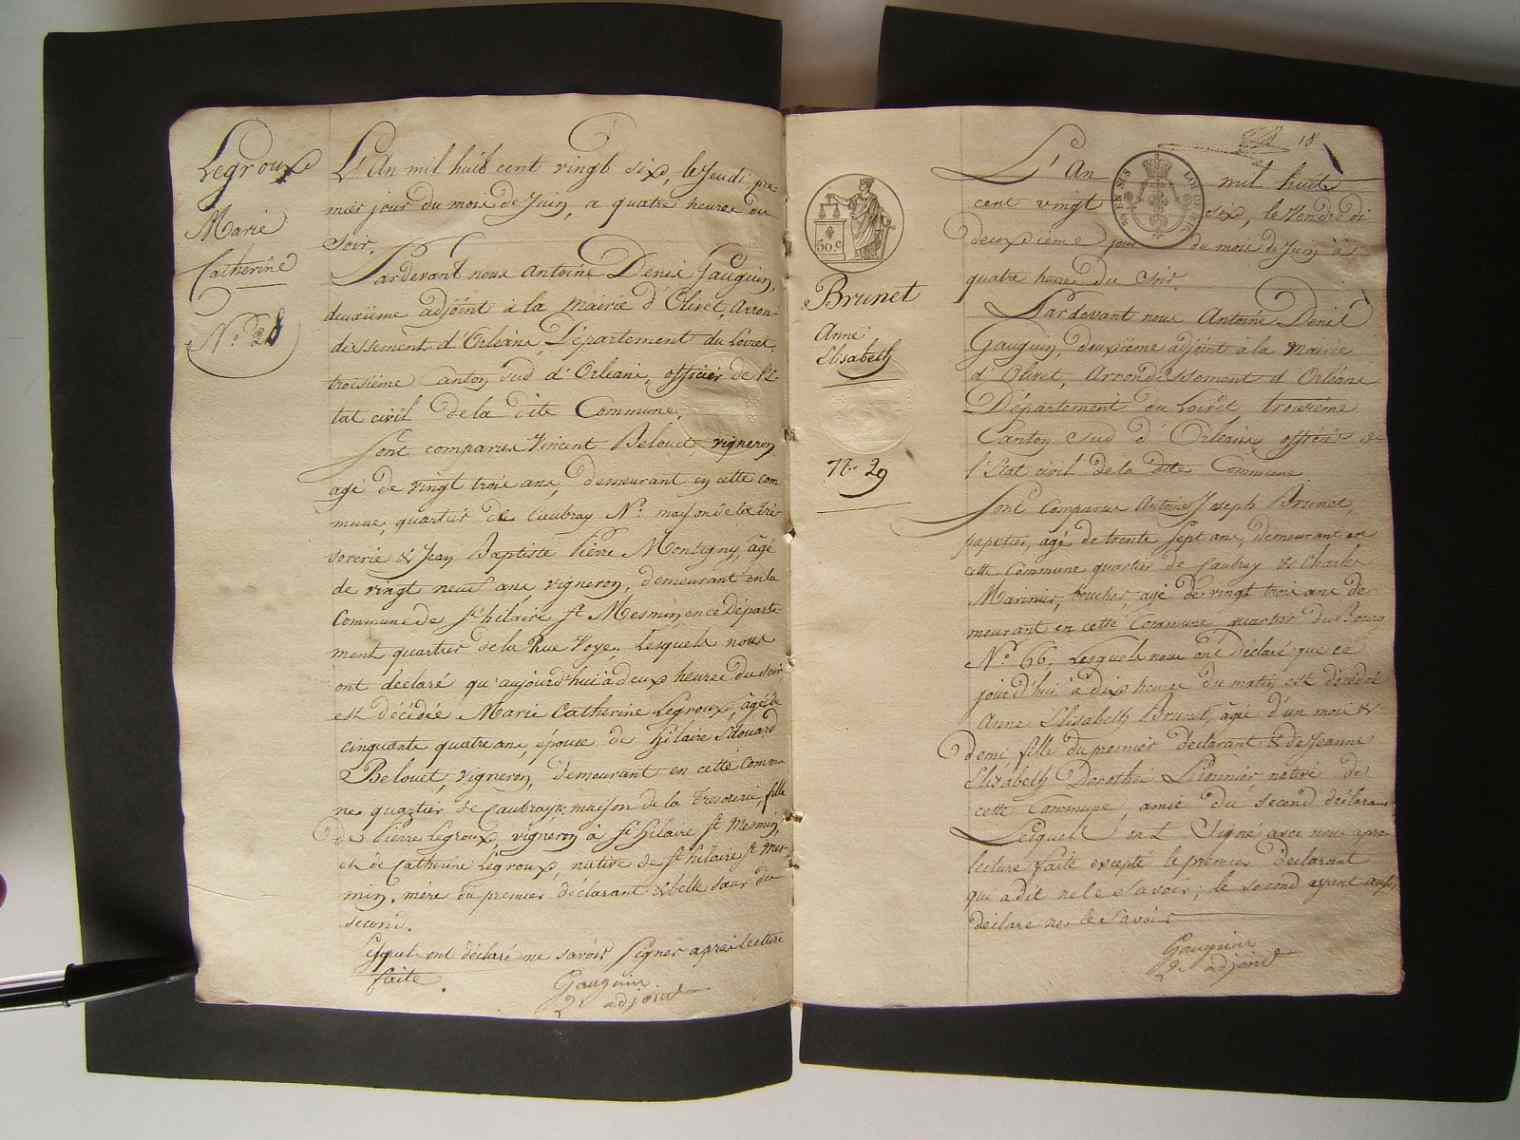 Legroux
Marie
Catherine
N.o 28
L'An mil huit cent vingt six, le Jeudi pre
mier jour du mois de Juin, a quatre heures du
soir.
Pardevant nous Antoine Denis Gauguin,
deuxième adjoint à la Mairie d'Olivet, Arron-
dissement d'Orléans, Département du Loiret,
troisième Canton sud d'Orléans, officier de l'é
tat civil de la dite Commune.
Sont comparus Vincent Belouet, vigneron
agé de vingt trois ans, demeurant en cette com
mune, quartier de Caubray N.o maison de la tré
sorerie & Jean Baptiste Pierre Montigny, âgé
de vingt neuf ans, vigneron, demeurant en la
Commune de St hilaire St Mesmin en ce départe
ment quartier de la Rue Voye. Lesquels nous
ont déclaré qu'aujourd'hui à deux heures du soir
est décédée Marie Catherine Legroux, âgée de
cinquante quatre ans, épouse de hilaire Edouard
Belouet, vigneron, demeurant en cette Commu
ne, quartier de Caubray, maison de la trésorerie, fille
de Pierre Legroux, vigneron à St hilaire St Mesmin,
et de Catherine Legroux, native de St hilaire St Mes-
min, mère du premier déclarant & belle sœur du
second.
Lesquels ont déclaré ne savoir signer après lecture
faite.
Gauguin
2e adjoint
18
50 c
Brunet
Anne
Elisabeth
N.o 29
L'An mil huit
cent vingt six, le Vendredi
deuxième jour du mois de Juin à
quatre heures du soir
Pardevant nous Antoine Denis
Gauguin, deuxième adjoint à la Mairie
d'Olivet, Arrondissement d'Orléans
Département du Loiret troisième
Canton sud d'Orléans officier de
l'état civil de la dite Commune
Sont Comparus Antoine Joseph Brunet,
papetier, agé de trente sept ans, demeurant en
cette Commune quartier de Caubray & Charles
Marinier, boucher, agé de vingt trois ans de
meurant en cette Commune quartier du Bourg
N.o 66. Lesquels nous ont déclaré que ce
jourd'hui à dix heures du matin est décédée
Anne Elisabeth Brunet, âgée d'un mois &
demi fille du premier déclarant & de Jeanne
Elisabeth Dorothée native de
cette Commune, amie du second déclarant
Lesquels ont Signé avec nous après
lecture faite excepté le premier déclarant
qui a dit ne le savoir; le second ayant aussi
déclaré ne le savoir
Gauguin
2e adjoint